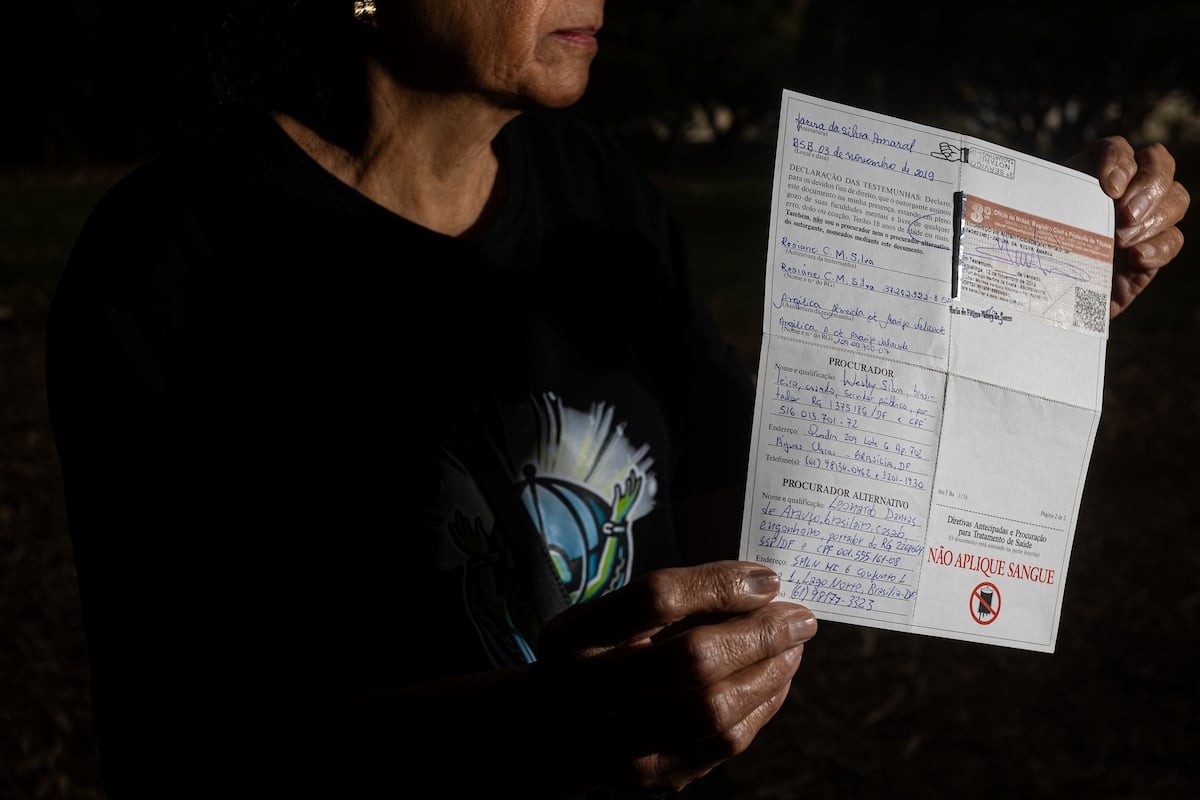 Janira da Silva Amaral
(Assinatura)
BSB 03 de novembro de 2019
(Local e data)
DECLARAÇÃO DAS TESTEMUNHAS: Declaro,
para os devidos fins de direito, que o outorgante assinou
este documento na minha presença, estando em pleno
gozo de suas faculdades mentais e livre de qualquer
erro, dolo ou coação. Tenho 18 anos de idade ou mais.
Também, não sou o procurador nem o procurador alternativo
do outorgante, nomeados mediante este documento.
Rosiane C. M. Silva
(Assinatura da testemunha)
Rosiane C. M. Silva
(Nome e n.º do RG)
Angélica
(Assinatura da testemunha)
Angélica A. de Araújo Valverde
(Nome e n.º do RG)
PROCURADOR
Nome e qualificação: Wesley Silva, brasi-
leiro, casado, servidor público, por-
tador RG 1375186/DF e CPF
516 013.701-72
Endereço: Quadra 209 Lote 6 Ap. 702
Águas Claras - BRASÍLIA, DF
Telefone(s): (61) 98134-0462 e 3201-1930
PROCURADOR ALTERNATIVO
Nome e qualificação: Leonardo Dantas
de Araújo, brasileiro, casado,
engenheiro portador do RG
SSP/DF e CPF 001.555.161-08
Endereço: SMLN MI 6 Conjunto 1
1, Lago Norte, Brasília-DF
(61) 98177-3323
SERVIÇO
NOTARIAL
3º Ofício de Notas, Registro Civil e Protesto de Títulos
DA SILVA AMARAL
Página 2 de 2
Diretivas Antecipadas e Procuração
para Tratamento de Saúde
(O documento está assinado na parte interna)
NÃO APLIQUE SANGUE